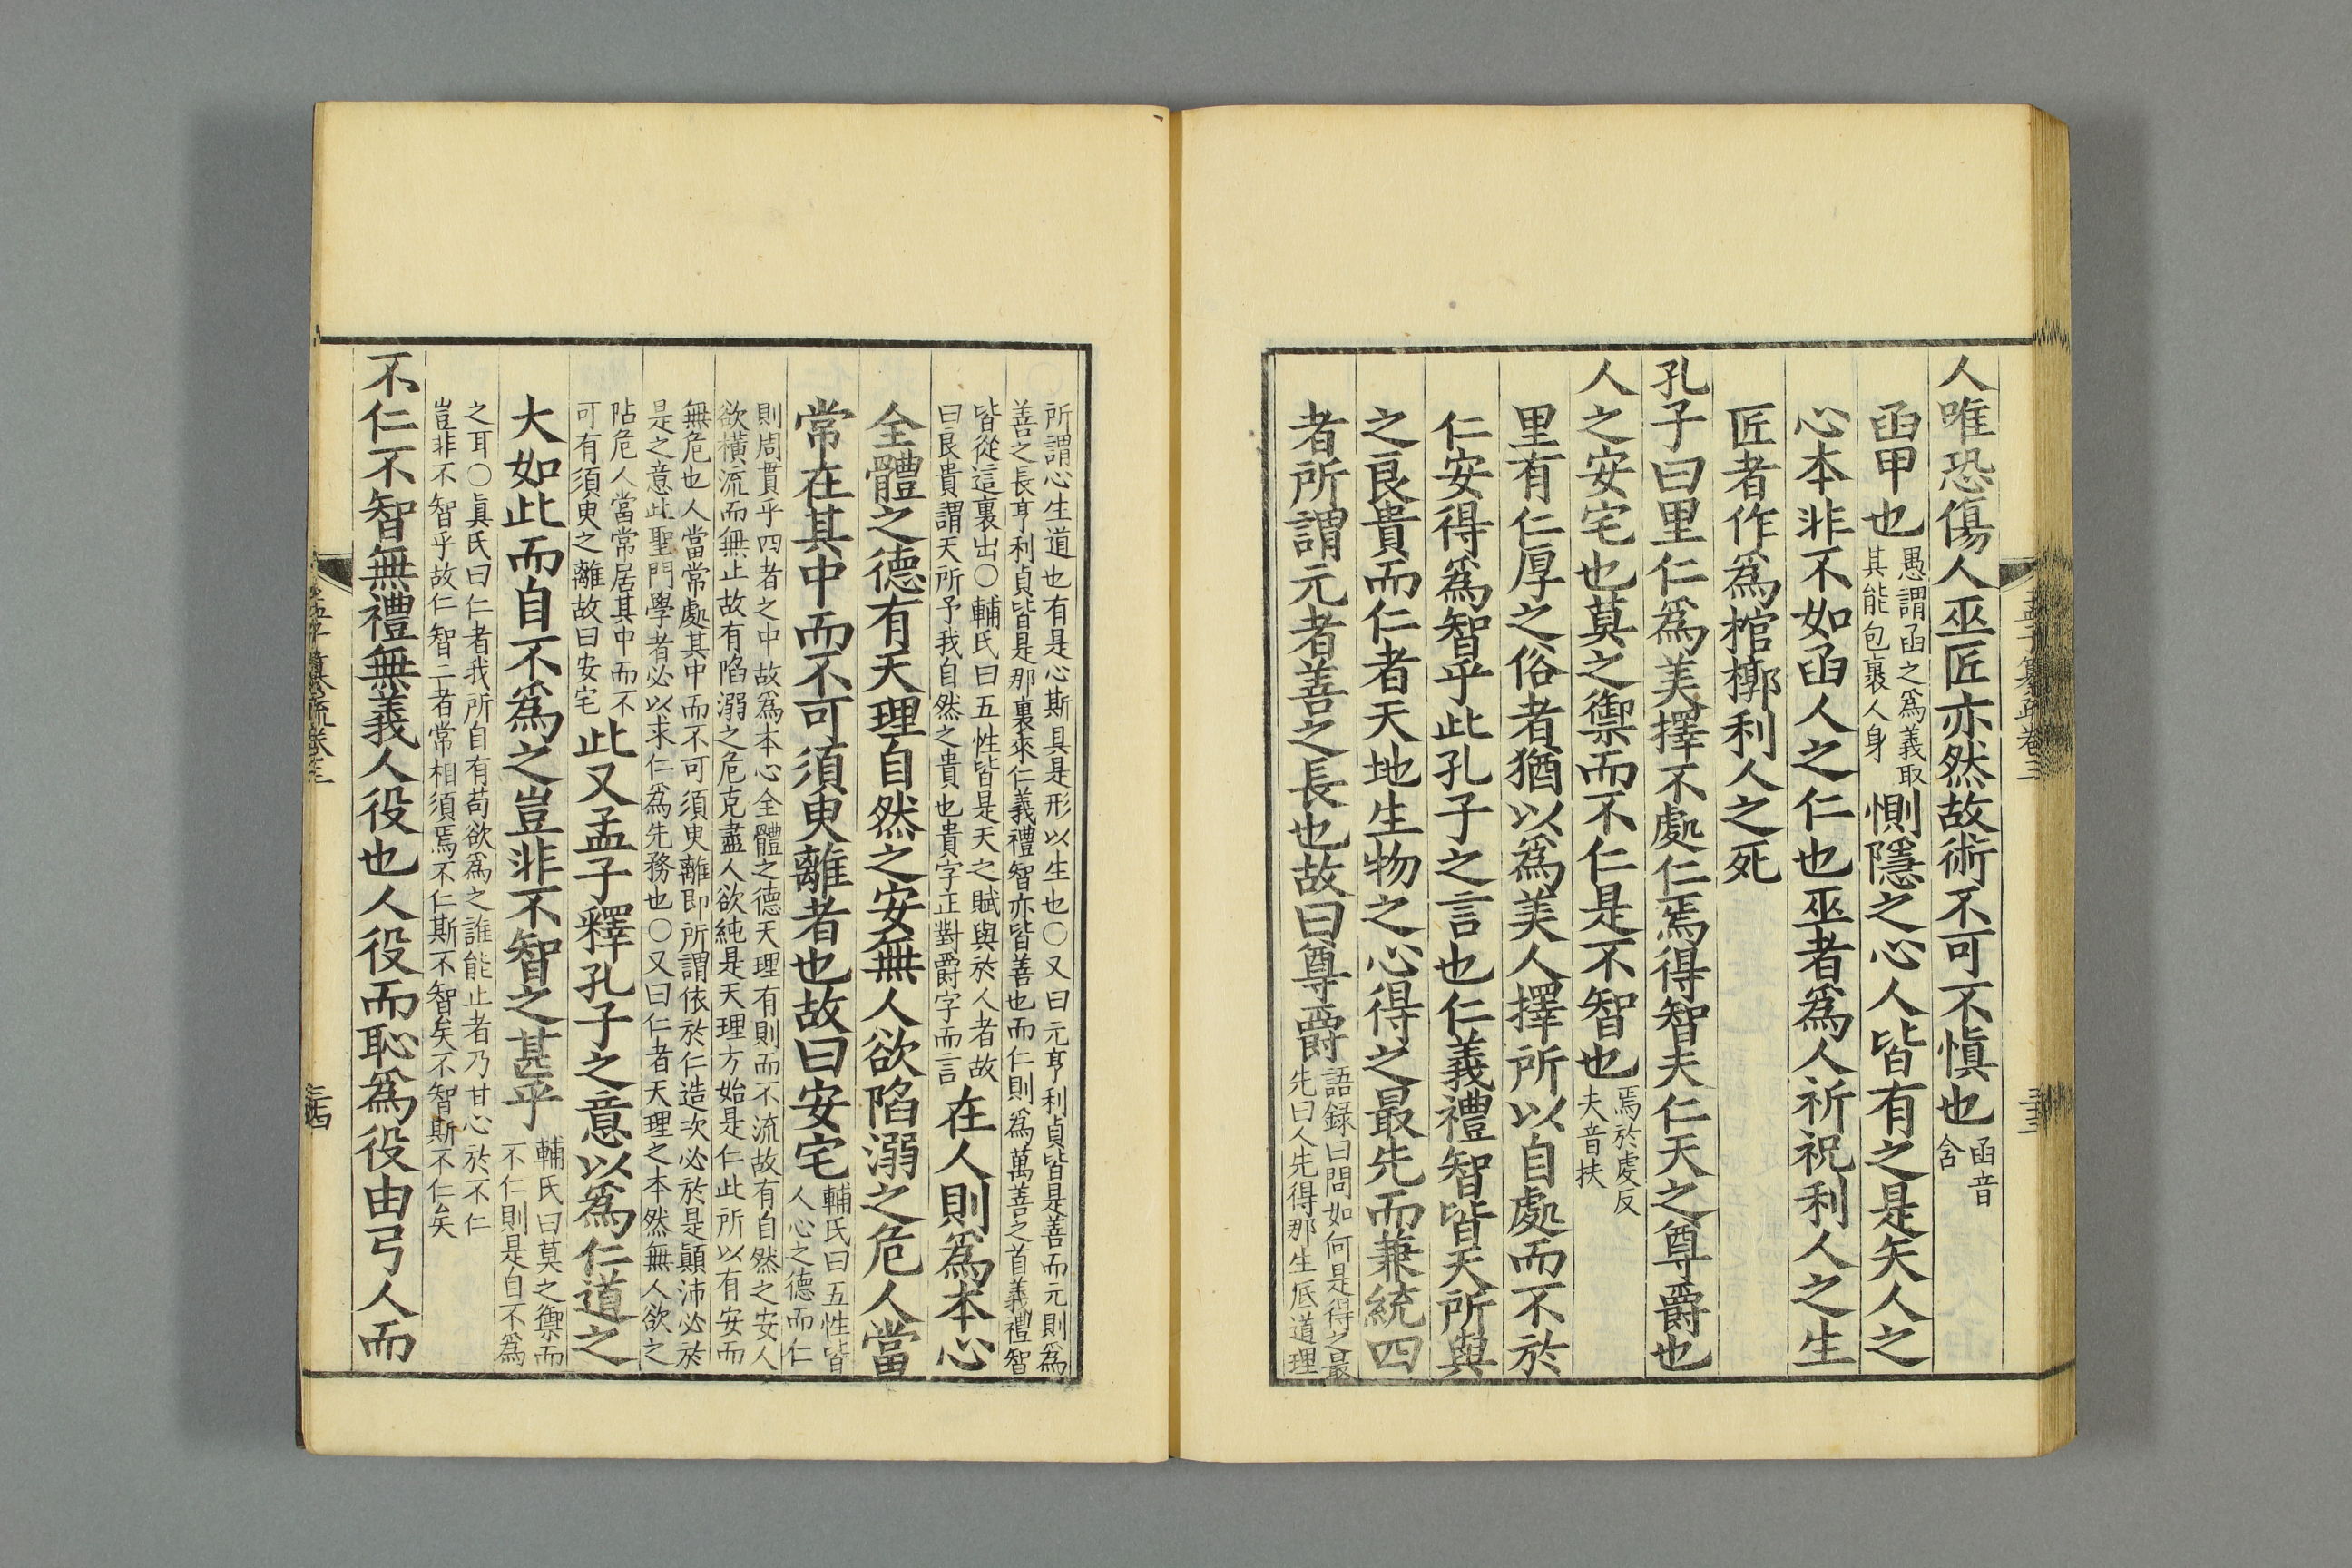 人唯恐傷人巫匠亦然故術不可不愼也函音
含
函甲也愚謂函之爲義取
其能包裹人身惻隱之心人皆有之是矢人之
心本非不如函人之仁也巫者爲人祈祝利人之生
匠者作爲棺槨利人之死
孔子曰里仁爲美擇不處仁焉得智夫仁天之尊爵也
人之安宅也莫之禦而不仁是不智也焉於虔反
夫音扶
里有仁厚之俗者猶以爲美人擇所以自處而不於
仁安得爲智乎此孔子之言也仁義禮智皆天所與
之良貴而仁者天地生物之心得之最先而兼統四
者所謂元者善之長也故曰尊爵語録曰問如何是得之最
先曰人先得那生底道理
孟子纂疏卷三
三十三
所謂心生道也有是心斯具是形以生也○又曰元亨利貞皆是善而元則爲
善之長亨利貞皆是那裏來仁義禮智亦皆善也而仁則爲萬善之首義禮智
皆從這裏出○輔氏曰五性皆是天之賦與於人者故
曰良貴謂天所予我自然之貴也貴字正對爵字而言在人則爲本心
全體之德有天理自然之安無人欲陷溺之危人當
常在其中而不可須臾離者也故曰安宅輔氏曰五性皆
人心之德而仁
則周貫乎四者之中故爲本心全體之德天理有則而不流故有自然之安人
欲橫流而無止故有陷溺之危克盡人欲純是天理方始是仁此所以有安而
無危也人當常處其中而不可須臾離即所謂依於仁造次必於是顚沛必於
是之意此聖門學者必以求仁爲先務也○又曰仁者天理之本然無人欲之
阽危人當常居其中而不
可有須臾之離故曰安宅此又孟子釋孔子之意以爲仁道之
大如此而自不爲之豈非不智之甚乎輔氏曰莫之禦而
不仁則是自不爲
之耳○眞氏曰仁者我所自有苟欲爲之誰能止者乃甘心於不仁
豈非不智乎故仁智二者常相須焉不仁斯不智矣不智斯不仁矣
不仁不智無禮無義人役也人役而恥爲役由弓人而
三十四